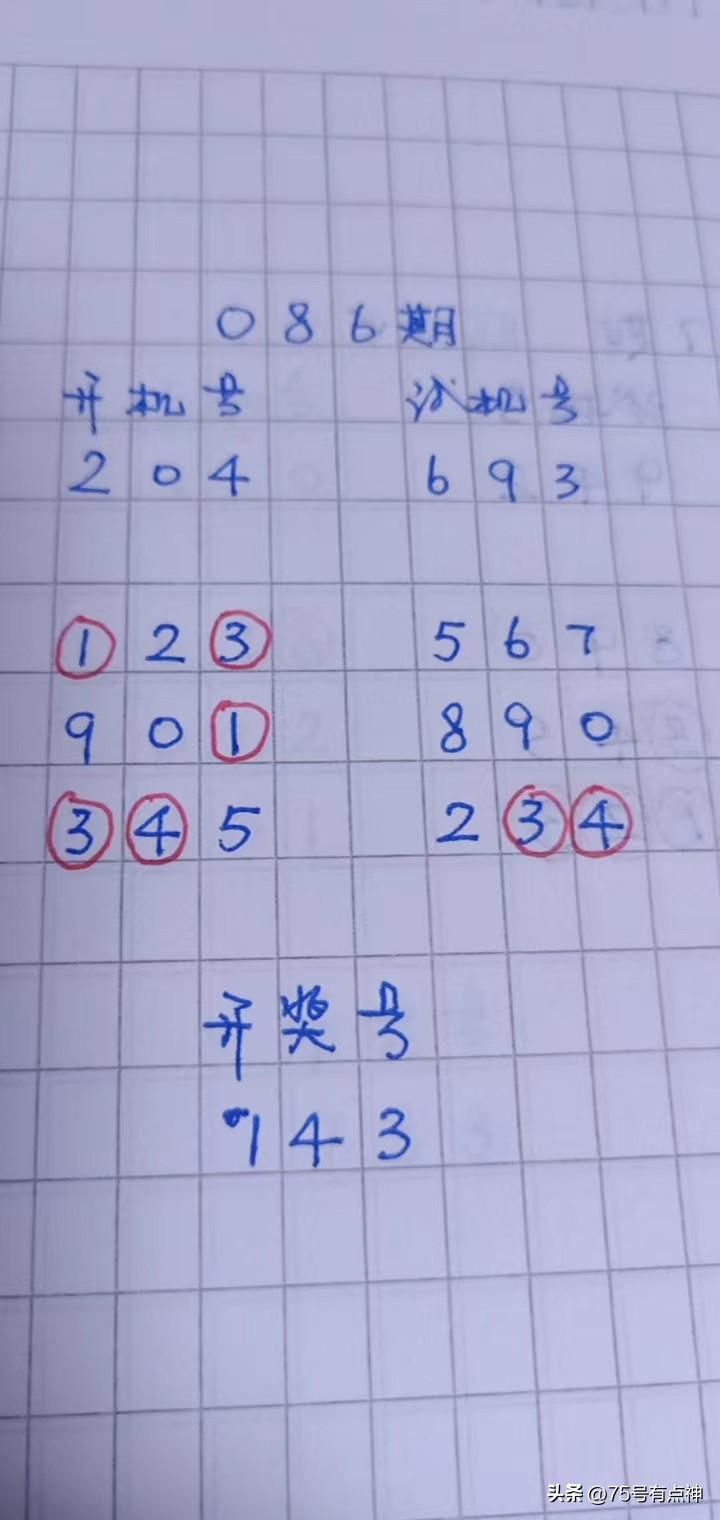 086期
开机号 试机号
204 693
①2③ 567
90① 890
③④5 2③④
开奖号
143
头条 @75号有点神